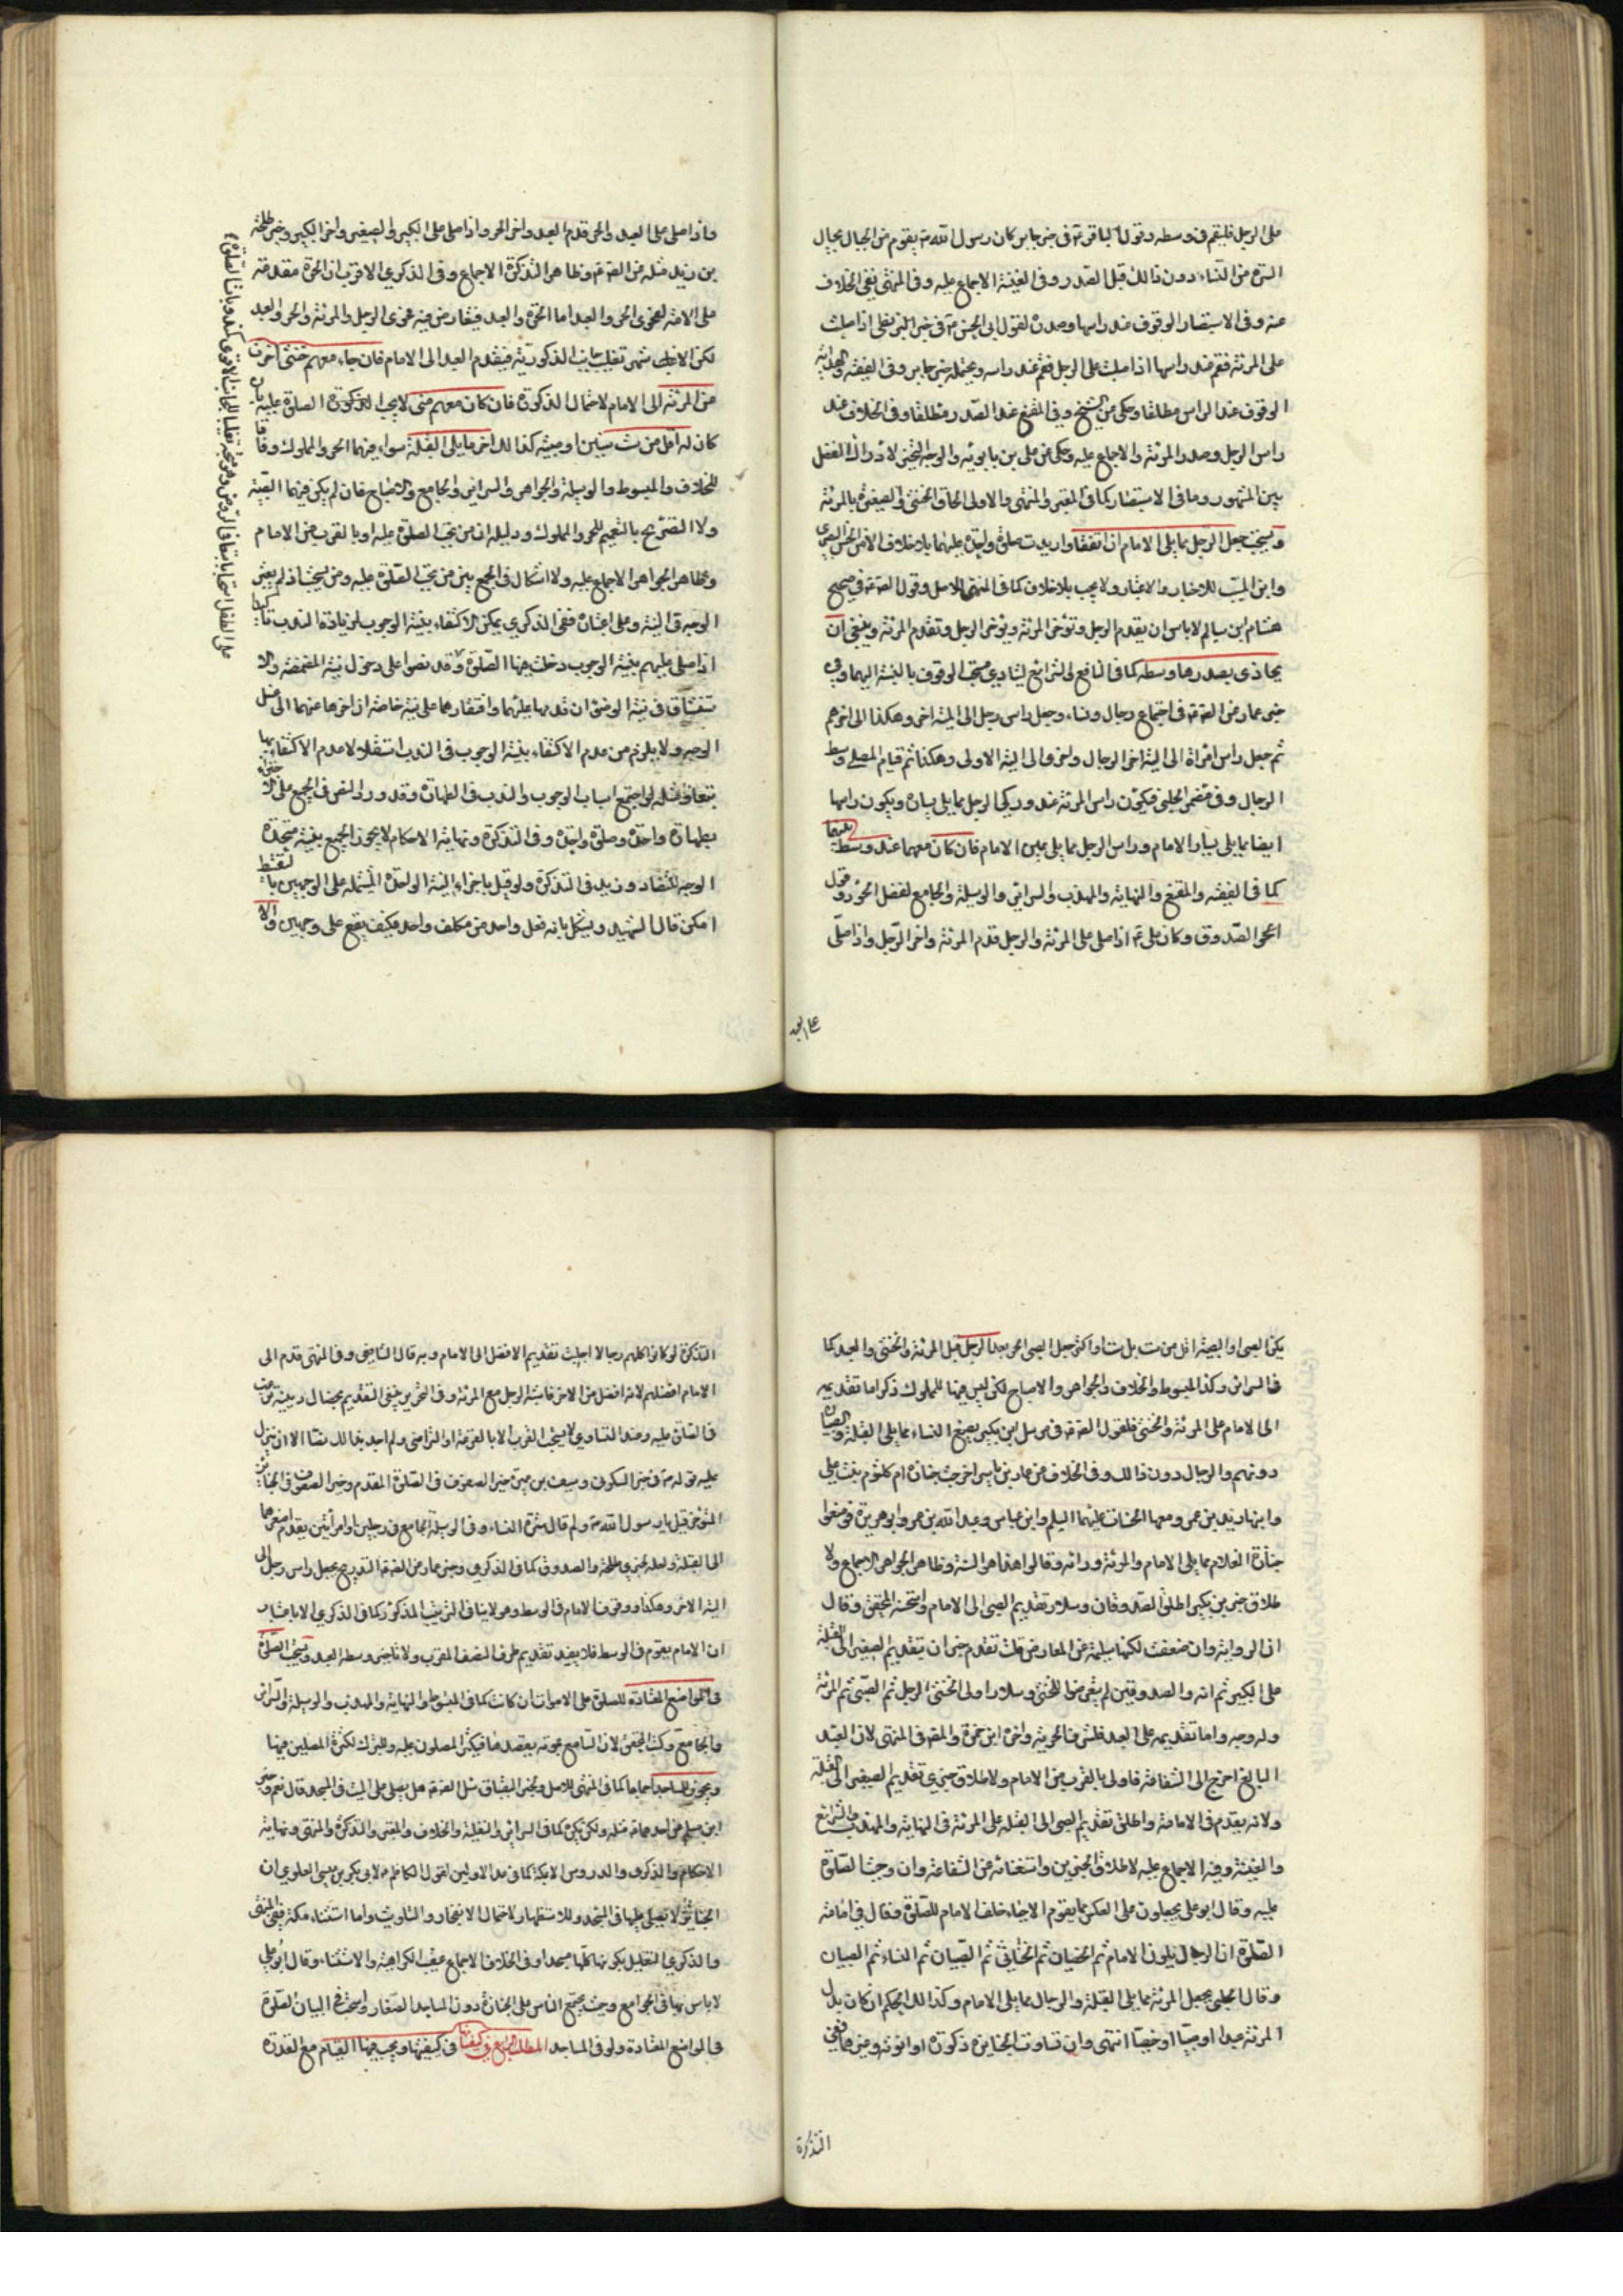 على الرجل فليقم في وسطه وقول الباقر ع في خبر جابر كان رسول الله ص يقوم من الرجال بحيال
السرة من النساء دون ذلك قبل الصدر وفي الغنية الاجماع عليه وفي المنتهى نفي الخلاف
عنه وفي الاستبصار الوقوف عند راسها وصدره لقول ابي الحسن ع في خبر اذا صليت
على المرئة فقم عند راسها اذا صليت على الرجل فقم عند راسه ويحتمله خبر جابر وفي الفقيه والهداية
الوقوف عند الراس مطلقا وحكي عن الشيخ وفي المقنع عند الصدر مطلقا وفي الخلاف عند
راس الرجل وصدر المرئة والاجماع عليه وحكي عن علي بن بابويه والوجه التخير لادراك الفضل
بين المشهور وما في الاستبصار كما في المعتبر والمنتهى والاولى الحاق الخنثى والصغيرة بالمرئة
ويستحب جعل الرجل مما يلى الامام ان اتفقا واريدت صلوة واحدة عليهما بلا خلاف الا من الحسن البصري
وابن المسيب للاخبار والاعتبار ولا يجب بلا خلاف كما في المنتهى للاصل وقول الصادق ع في صحيح
هشام ابن سالم لا باس ان يقدم الرجل وتؤخر المرئة ويؤخر الرجل وتقدم المرئة وينبغي ان
يحاذى بصدرها وسطه كما في النافع والشرائع ليتادى مستحب الوقوف بالنسبة اليهما وفي
خبر عمار عن الصادق ع في اجتماع رجال ونساء وجعل راس رجل الى الية اخر وهكذا الى اخرهم
ثم جعل راس امراة الى الية اخر الرجال واخرى الى الية الاولى وهكذا ثم قيام المصلى وسط
الرجال وفي مضمر الحلبي فيكون راس المرئة عند وركي الرجل مما يلي يساره ويكون راسها
ايضا مما يلى يسار الامام وراس الرجل مما يلى يمين الامام فان كان معهما عبد وسط بينهما
كما في الفقيه والمقنع والنهاية والمهذب والسرائر والوسيلة والجامع لفضل الحر وقول
الصدوق وكان علي ع اذا صلى على المرئة والرجل قدم المرئة واخر الرجل واذا صلى
على العبد
واذا صلى على العبد والحر قدم العبد واخر الحر واذا صلى على الكبير والصغير واخر الكبير وخبر طلحة
بن زيد مثله عن الصادق ع وظاهر التذكرة الاجماع وفي الذكرى الاقرب ان الحرة مقدمة
على الامة لفحوى الحر والعبد اما الحرة والعبد فتعارض فيه فحوى الرجل والمرئة والحر والعبد
لكن الاغلب تغليب جانب الذكورية فيقدم العبد الى الامام فان جاء معهم خنثى اخرت
عن المرئة الى الامام لاحتمال الذكورة فان كان معهم صبى لا يجب الصلوة عليه بان
كان له اقل من ست سنين او صبية كذلك اخر مما يلى القبلة سواء فيهما الحر والمملوك وفاقا
للخلاف والمبسوط والوسيلة والجواهر والسرائر والجامع والاصباح فان لم يكن فيهما الصبية
ولا التصريح بالتعميم للحر والمملوك ودليله ان من يجب الصلوة عليه اولى بالقرب من الامام
وظاهر الجواهر الاجماع عليه ولا اشكال في الجمع بين من يجب الصلوة عليه ومن يستحب اذ لم يعتبر
الوجه في النية وعلى اعتباره ففى الذكرى يمكن الاكتفاء بنية الوجوب لزيادة الندب تاكيدا
اذا صلى عليهم بنية الوجوب دخلت فيها الصلوة وقد نصوا على دخول نية المضمضة والا
ستنشاق في نية الوضوء ان قدمها عليهما وافتقارهما على نية خاصة ان اخرها عنهما الى غسل
الوجه ولا يلزم من عدم الاكتفاء بنية الوجوب في الندب استقلالا عدم الاكتفاء بها
بطهارة واحدة وصلوة واحدة وفي التذكرة ونهاية الاحكام لا يجوز الجمع بنية متحدة
الوجه للتضاد وزيد في التذكرة ولو قيل باجزاء النية الواحدة المشتملة على الوجهين بالتقسيط
امكن قال الشهيد ويشكل بانه فعل واحد من مكلف واحد فكيف يقع على وجهين والا
يكن الصبى او الصبية اقل من ست بل ست او اكثر جعل الصبى الحر بعد الرجل قبل المرئة والخنثى والعبد كما
في السرائر وكذا المبسوط والخلاف والجواهر والاصباح لكن ليس فيها للمملوك ذكر اما تقديمه
الى الامام على المرئة والخنثى فلقول الصادق ع في مرسل ابن بكير يضع النساء مما يلى القبلة والصبيان
دونهم والرجال دون ذلك وفي الخلاف عن عمار بن ياسر اخرجت جنازة ام كلثوم بنت علي
وابنها زيد بن عمر ومعها الحسنان عليهما السلم وابن عباس وعبد الله بن عمر وابو هريرة فوضعوا
جنازة الغلام مما يلى الامام والمرئة ورائه وقالوا هذا هو السنة وظاهر الجواهر الاجماع ولا
طلاق خبر بن بكير اطلق الصدوقان وسلار تقديم الصبى الى الامام واستحسنه المحقق وقال
ان الرواية وان ضعفت لكنها سليمة عن المعارض قلت تقدم خبر ان بتقديم الصغير الى القبلة
على الكبير ثم انه والصدوقين لم يتعرضوا للخنثى وسلار اولى الخنثى الرجل ثم الصبى ثم المرئة
وله وجه واما تقديمه على العبد فلشرف الحرية واخره ابن حمزة والمصنف في المنتهى لان العبد
البالغ احوج الى الشفاعة فاولى بالقرب من الامام ولاطلاق خبرى تقديم الصغير الى القبلة
ولانه يقدم في الامامة واطلق تقديم الصبى الى القبلة على المرئة في النهاية والمهذب والشرائع
والغنية وفيه الاجماع عليه لاطلاق الخبرين واستغنائه عن الشفاعة وان وجبت الصلوة
عليه وقال ابو علي يجعلون على العكس مما يقوم الاحياء خلف الامام للصلوة وقال في امامة
الصلوة ان الرجال يلون الامام ثم الخصيان ثم الخناثى ثم الصبيان ثم النساء ثم الصبيات
وقال الحلبي يجعل المرئة مما يلى القبلة والرجال مما يلى الامام وكذلك الحكم ان كان بدل
المرئة عبدا او صبيا او خصيا انتهى وان تساوت الجنايز في ذكورة او انوثة وغيرهما ففي
التذكرة
التذكرة لو كانوا كلهم رجالا احببت تقديم الافضل الى الامام وبه قال الشافعي وفي المنتهى قدم الى
الامام افضلهم لانه افضل من الاخر فاشبه الرجل مع المرئة وفي التحرير ينبغي التقديم بخصال دينية
في الصلوة عليه وعند التساوى لا يستحب القرب الا بالقرعة او التراضى ولم اجد بذلك نصا الا ان ينزل
عليه قوله ص في خبر السكوني وسيف بن عميرة خير الصفوف في الصلوة المقدم وخير الصفوف في الجنائز
المؤخر قيل يا رسول الله ص ولم قال سترة النساء وفي الوسيلة والجامع في رجلين او امرأتين يقدم اصغرهما
الى القبلة ولعله لخبرى طلحة والصدوق كما في الذكرى وخبر عمار عن الصادق التدريج بجعل راس رجل الى
الية الاخر وهكذا ووقوف الامام في الوسط وهو لا ينافى الترتيب المذكور كما في الذكرى الا باعتبار
ان الامام يقوم في الوسط فلا يفيد تقديم طرف الصف القرب ولا تاخير وسطه البعد ويستحب الصلوة
في المواضع المعتادة للصلوة على الاموات ان كانت كما في المبسوط والنهاية والمهذب والوسيلة والسرائر
والجامع وكتب المحقق لان السامع بموته يقصدها فيكثر المصلون عليه وللتبرك لكثرة المصلين فيها
ويجوز في المساجد اجماعا كما في المنتهى للاصل وخبر البقباق سئل الصادق ع هل يصلى على الميت في المسجد قال نعم وخبر
ابن مسلم عن احدهما ع مثله ولكن يكره كما في السرائر والنفلية والخلاف والمعتبر والتذكرة والمنتهى ونهاية
الاحكام والذكرى والدروس الا بمكة كما في عدا الاولين لقول الكاظم ع لابى بكر بن عيسى العلوي ان
الجنائز لا يصلى عليها في المسجد وللاستظهار لاحتمال الانفجار والتلويث واما استثناء مكة ففي المنتهى
والذكرى التعليل بكونها كلها مسجدا وفي الخلاف الاجماع عقيب الكراهية والاستثناء وقال ابو علي
لا باس بها في الجوامع وحيث يجتمع الناس على الجنازة دون المساجد الصغار واستحب في البيان الصلوة
في المواضع المعتادة ولو في المساجد المطلب الرابع في كيفيتها ويجب فيها القيام مع القدرة